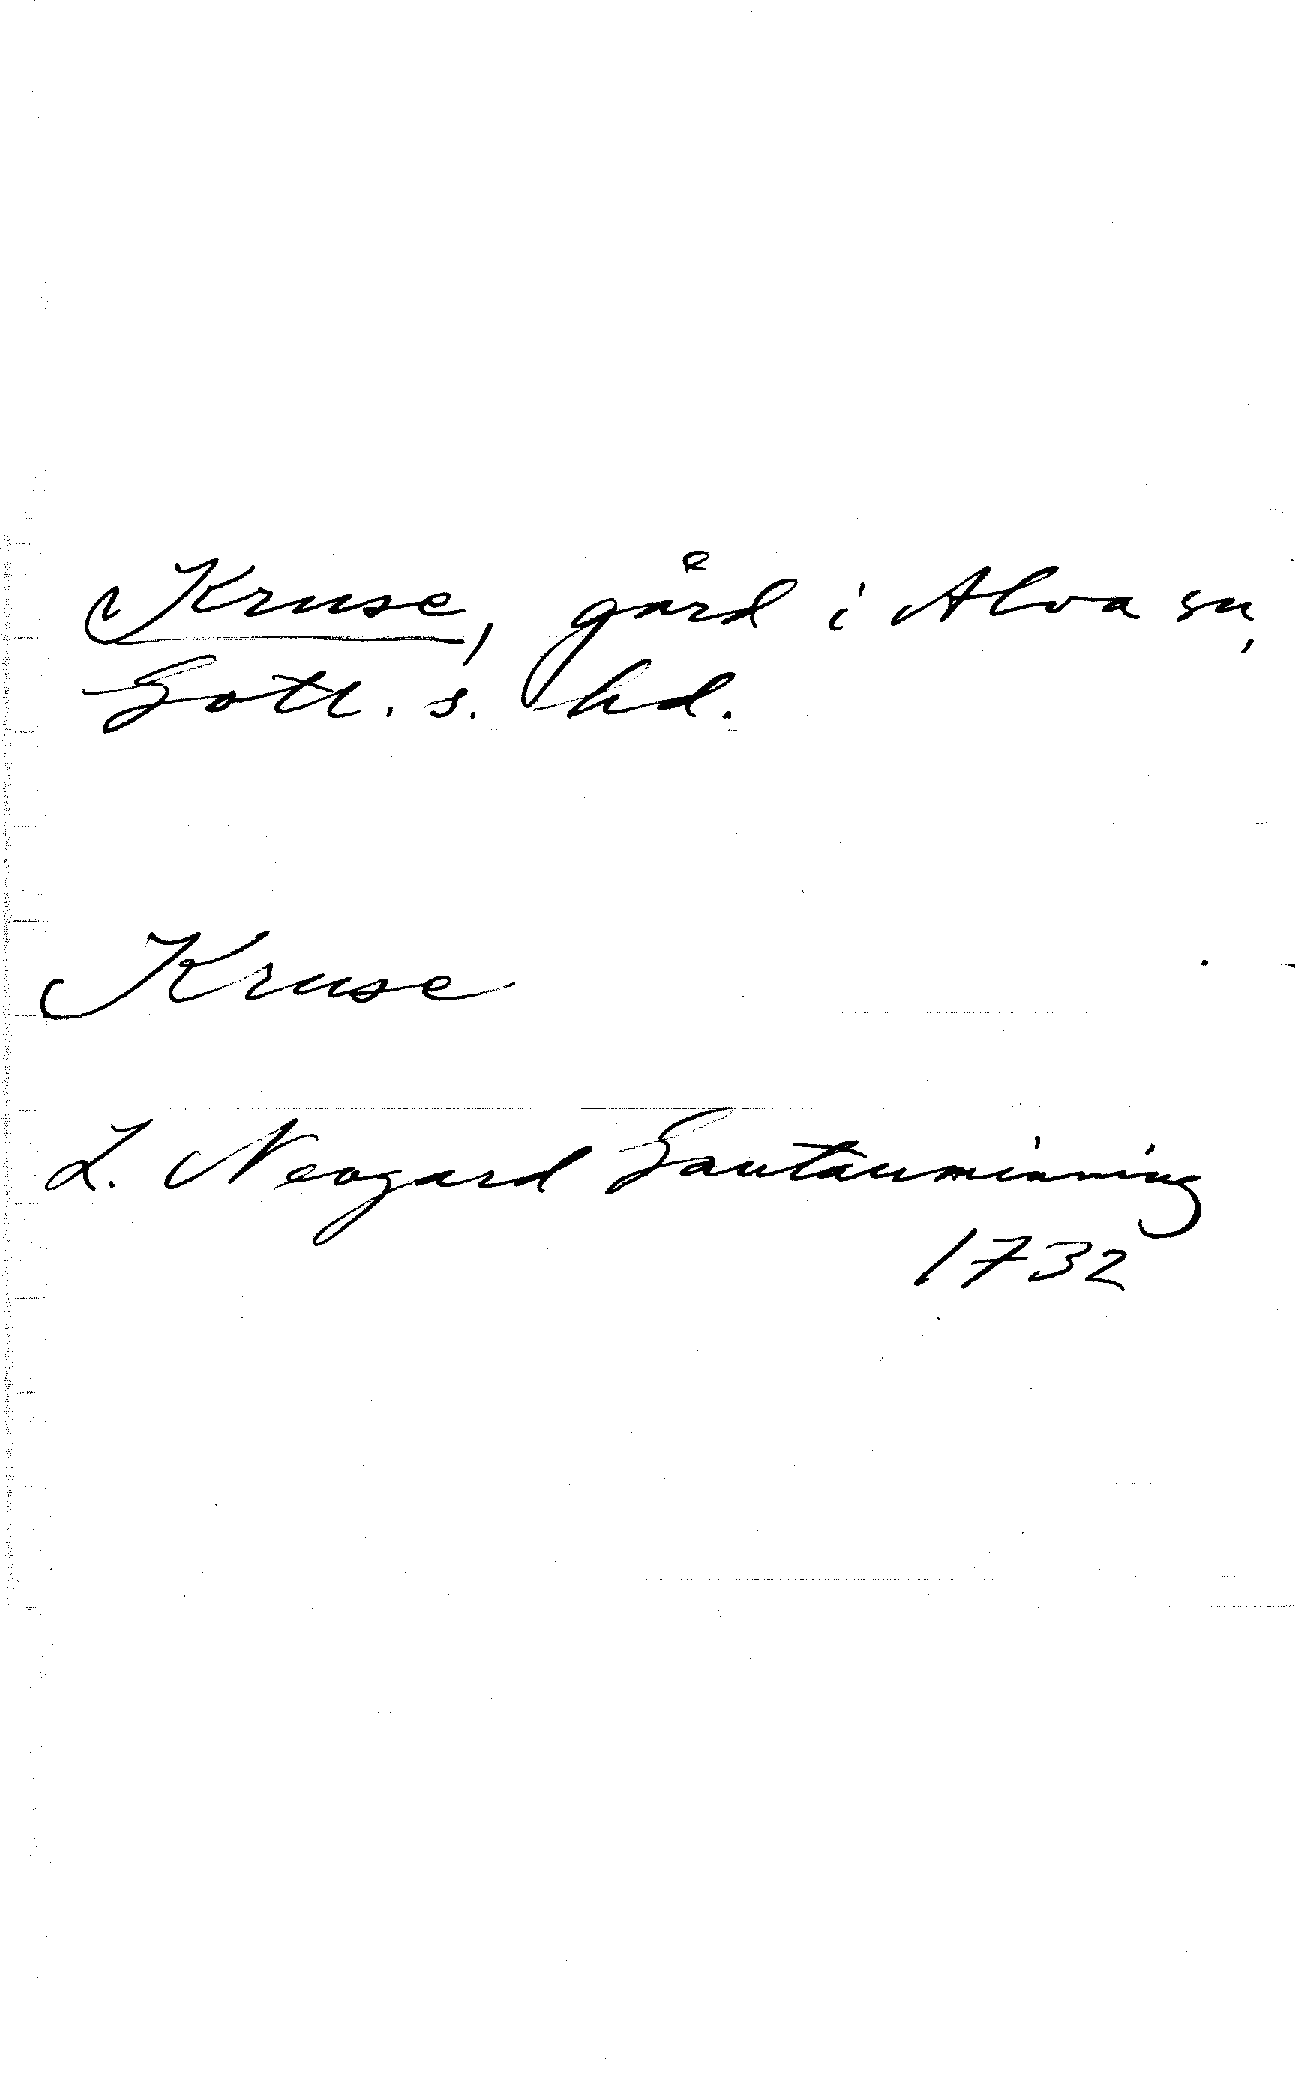 Kruse, gård i Alva sn,
Gotl. s. hd.
Kruse
L. Neogard Gautauminning
1732